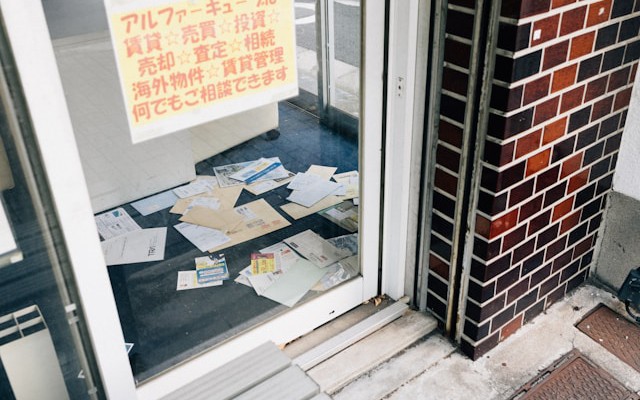 アルファーキューブは
賃貸☆売買☆投資☆
売却☆査定☆相続
海外物件☆賃貸管理
何でもご相談できます